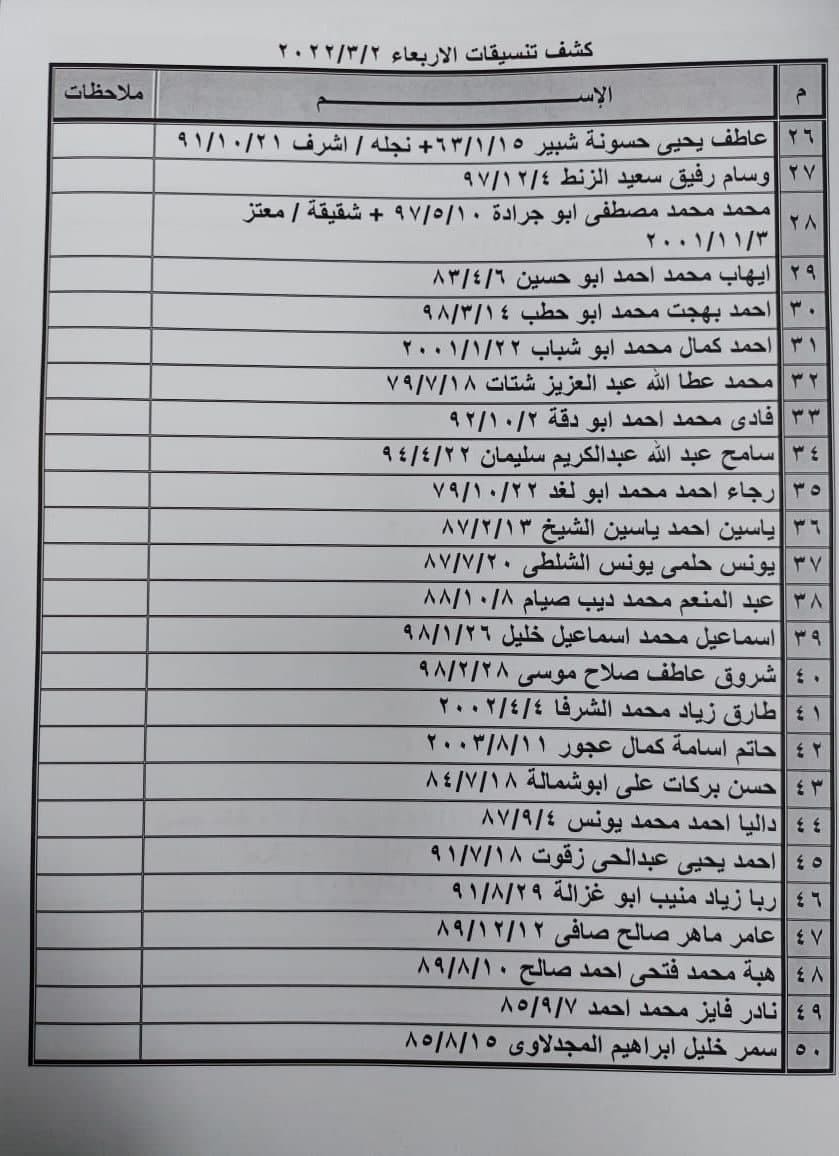 كشف تنسيقات الاربعاء ٢٠٢٢/٣/٢
م الإســـــــم ملاحظات
٢٦ عاطف يحيى حسونة شبير ٦٣/١/١٥+ نجله / اشرف ٩١/١٠/٢١
٢٧ وسام رفيق سعيد الزنط ٩٧/١٢/٤
٢٨ محمد محمد مصطفى ابو جرادة ٩٧/٥/١٠ + شقيقة / معتز
٢٠٠١/١١/٣
٢٩ ايهاب محمد احمد ابو حسين ٨٣/٤/٦
٣٠ احمد بهجت محمد ابو حطب ٩٨/٣/١٤
٣١ احمد كمال محمد ابو شباب ٢٠٠١/١/٢٢
٣٢ محمد عطا الله عبد العزيز شتات ٧٩/٧/١٨
٣٣ فادى محمد احمد ابو دقة ٩٢/١٠/٢
٣٤ سامح عبد الله عبدالكريم سليمان ٩٤/٤/٢٢
٣٥ رجاء احمد محمد ابو لغد ٧٩/١٠/٢٢
٣٦ ياسين احمد ياسين الشيخ ٨٧/٢/١٣
٣٧ يونس حلمى يونس الشلطى ٨٧/٧/٢٠
٣٨ عبد المنعم محمد ديب صيام ٨٨/١٠/٨
٣٩ اسماعيل محمد اسماعيل خليل ٩٨/١/٢٦
٤٠ شروق عاطف صلاح موسى ٩٨/٢/٢٨
٤١ طارق زياد محمد الشرفا ٢٠٠٢/٤/٤
٤٢ حاتم اسامة كمال عجور ٢٠٠٣/٨/١١
٤٣ حسن بركات على ابوشمالة ٨٤/٧/١٨
٤٤ داليا احمد محمد يونس ٨٧/٩/٤
٤٥ احمد يحيى عبدالحى زقوت ٩١/٧/١٨
٤٦ ربا زياد منيب ابو غزالة ٩١/٨/٢٩
٤٧ عامر ماهر صالح صافى ٨٩/١٢/١٢
٤٨ هبة محمد فتحى احمد صالح ٨٩/٨/١٠
٤٩ نادر فايز محمد احمد ٨٥/٩/٧
٥٠ سمر خليل ابراهيم المجدلاوى ٨٥/٨/١٥